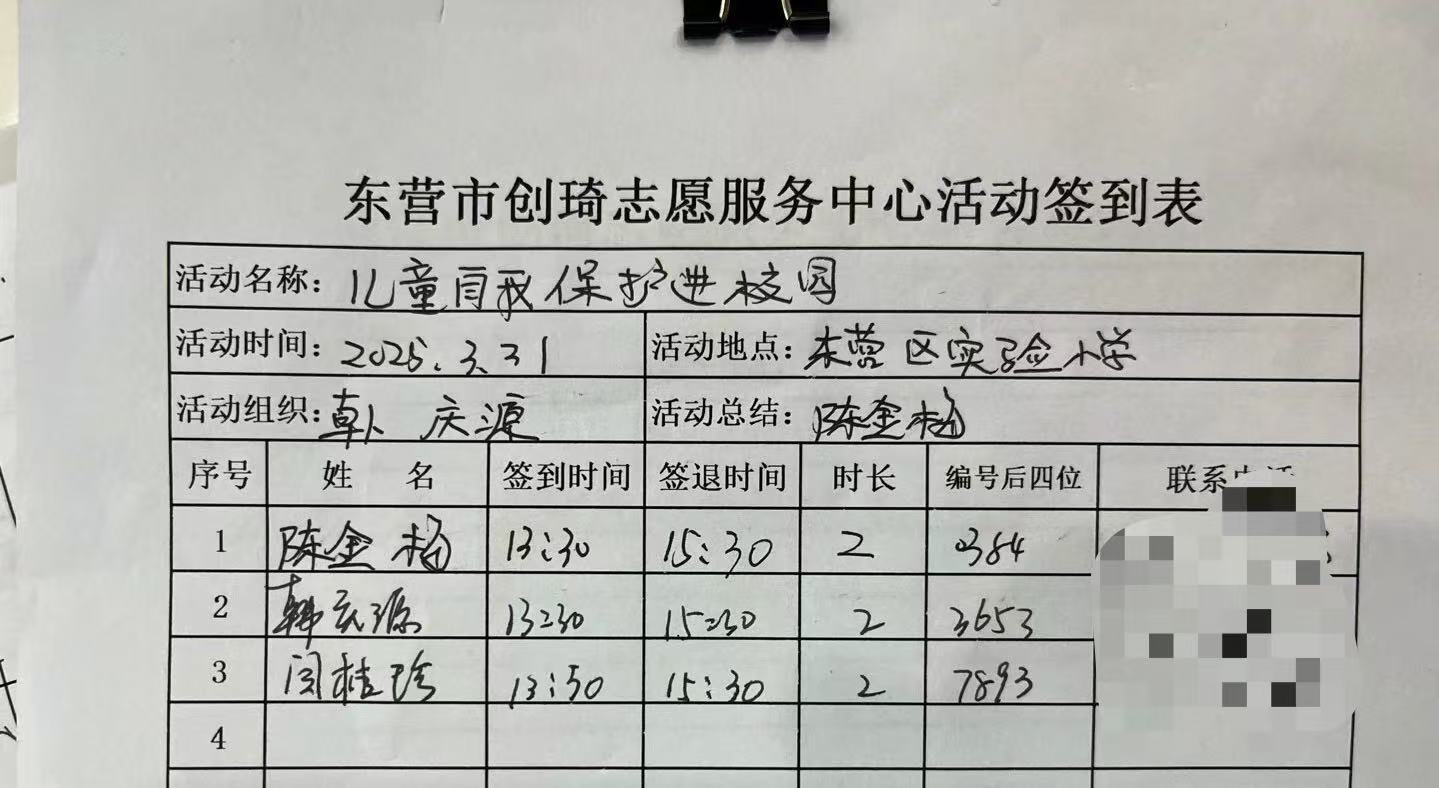 东营市创琦志愿服务中心活动签到表
活动名称：儿童自我保护进校园
活动时间：2025.3.31 活动地点：东营区实验小学
活动组织：韩庆源 活动总结：陈金梅
序号 姓名 签到时间 签退时间 时长 编号后四位 联系电话
1 陈金梅 13:30 15:30 2 0384
2 韩庆源 13:30 15:30 2 3653
3 闫桂珍 13:30 15:30 2 7893
4